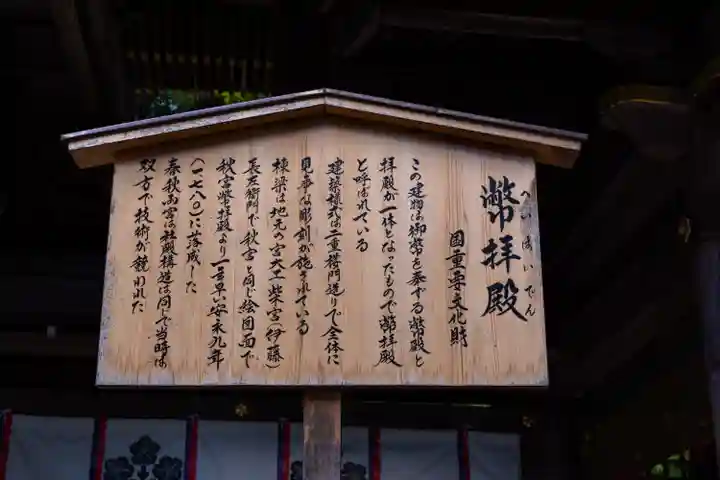 へいはいでん
幣拝殿
国重要文化財
この建物は御幣を奉する幣殿と
拝殿が一体となったもので幣拝殿
と呼ばれている
建築様式は二重楼門造りで全体に
見事な彫刻が施されている
棟梁は地元の宮大工柴宮(伊藤)
長左衛門で秋宮と同じ絵図面で
秋宮幣拝殿より一年早い安永九年
(一七八〇)に落成した
春秋両宮は社殿構造は同じで当時は
双方で技術が競われた